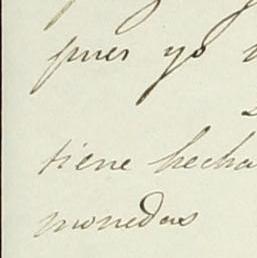 pues yo
tiene hecha
monedas